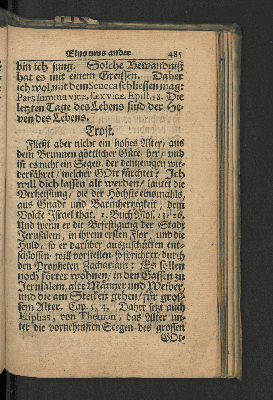 Eins ums ander. 485
bin ich jung. Solche Bewandniß
hat es mit einem Greissen. Daher
ich wol mit dem Seneca schliessen mag:
Pars summa vitæ, fæx vitæ. Epist. 58. Die
letzten Tage des Lebens sind der He-
ven des Lebens.
Trost.
Fließt aber nicht ein hohes Alter, aus
dem Brunnen göttlicher Güte, her, und
ist es nicht ein Segen, der denenjenigen wie-
derfähret, welcher GOtt fürchtet: Ich
will dich lassen alt werden, lautet die
Verheissung, die der Höchste einsmahls,
aus Gnade und Barmhertzigkeit, dem
Volcke Israel that. 2. Buch Mos. 23, 26.
Und wenn er die Befestigung der Stadt
Jerusalem, in ihrem ersten Flor, und die
Huld, so er darüber auszuschütten ent-
schlossen, will vorstellen, so spricht er durch
den Propheten Zachariam: Es sollen
noch förter wohnen, in den Gassen zu
Jerusalem, alte Männer und Weiber,
und die am Stecken gehen, für gros-
sem Alter. Cap. 8, 4. Daher setzt auch
Eliphas, von Theman, das Alter un-
ter die vornehmsten Seegen des grossen
GOt-